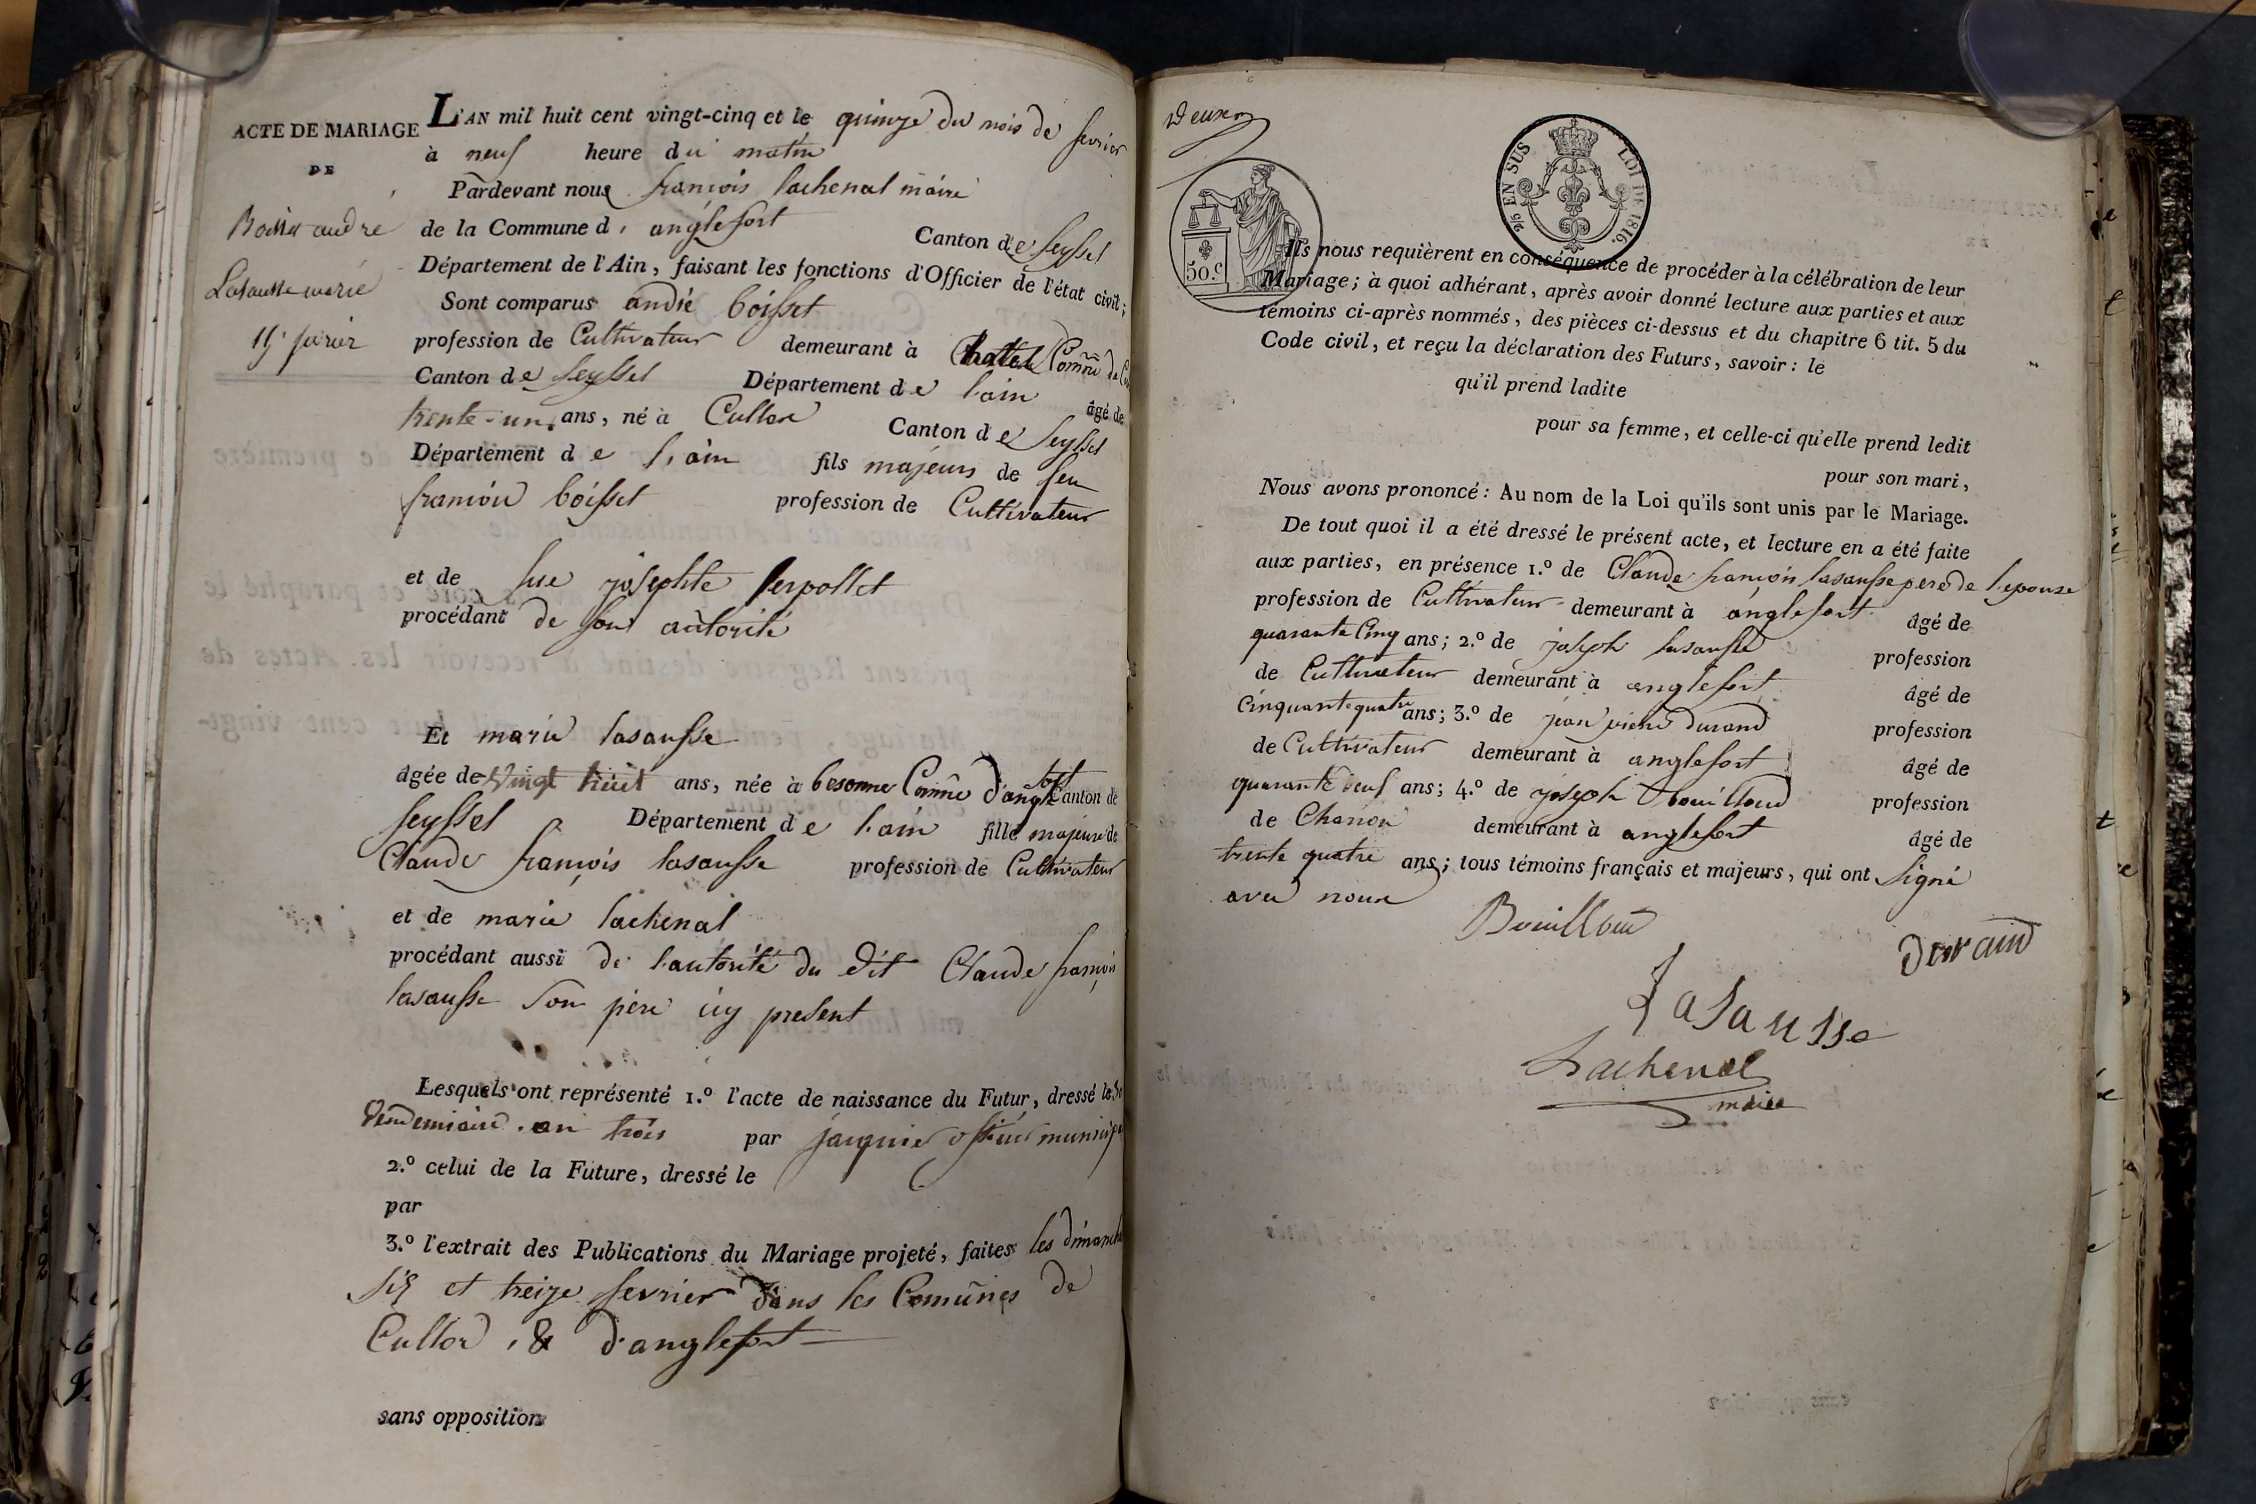 ACTE DE MARIAGE
DE
Boisset andré
Lasausse marie
15 fevrier
L'AN mil huit cent vingt-cinq et le quinze du mois de fevrier
à neuf heure du matin
Pardevant nous françois lachenal maire
de la Commune d'anglefort Canton de Seyssel
Département de l'Ain, faisant les fonctions d'Officier de l'état civil;
Sont comparus andré boisset
profession de Cultivateur demeurant à Comñe de
Canton de Seyssel Département de l'ain âgé de
trente-un ans, né à Culloz Canton de Seyssel
Département de l'ain fils majeur de feu
françois boisset profession de Cultivateur
et de fue josephte
procédant de son autorité
Et marie lasausse
âgée de vingt huit ans, née à besonne Comñe d'anglefort Canton de
Seyssel Département de l'ain fille majeure de
Claude françois lasausse profession de Cultivateur
et de marie lachenal
procédant aussi de l'autorité du dit Claude françois
lasausse son père icy present
Lesquels ont représenté 1.º l'acte de naissance du Futur, dressé le
Vendemiaire an trois par jacquier officier municipal
2.º celui de la Future, dressé le
par
3.º l'extrait des Publications du Mariage projeté, faites les dimanche
six et treize fevrier dans les Comũnes de
Culloz, & d'anglefort
sans opposition
Deux
2/5 EN SUS LOI DE 1816.
50.c
Ils nous requièrent en conséquence de procéder à la célébration de leur
Mariage; à quoi adhérant, après avoir donné lecture aux parties et aux
témoins ci-après nommés, des pièces ci-dessus et du chapitre 6 tit. 5 du
Code civil, et reçu la déclaration des Futurs, savoir: le
qu'il prend ladite
pour sa femme, et celle-ci qu'elle prend ledit
pour son mari,
Nous avons prononcé: Au nom de la Loi qu'ils sont unis par le Mariage.
De tout quoi il a été dressé le présent acte, et lecture en a été faite
aux parties, en présence 1.º de Claude françois lasausse pere de l'epouse
profession de Cultivateur demeurant à anglefort âgé de
quarante Cinq ans; 2.º de joseph lasausse profession
de Cultivateur demeurant à anglefort âgé de
Cinquante quatre ans; 3.º de jean pierre durand profession
de Cultivateur demeurant à anglefort âgé de
quarante neuf ans; 4.º de joseph bouilloud profession
de demeurant à anglefort âgé de
trente quatre ans; tous témoins français et majeurs, qui ont signé
avec nous
Bouilloud
Durand
Lasausse
Lachenal
maire